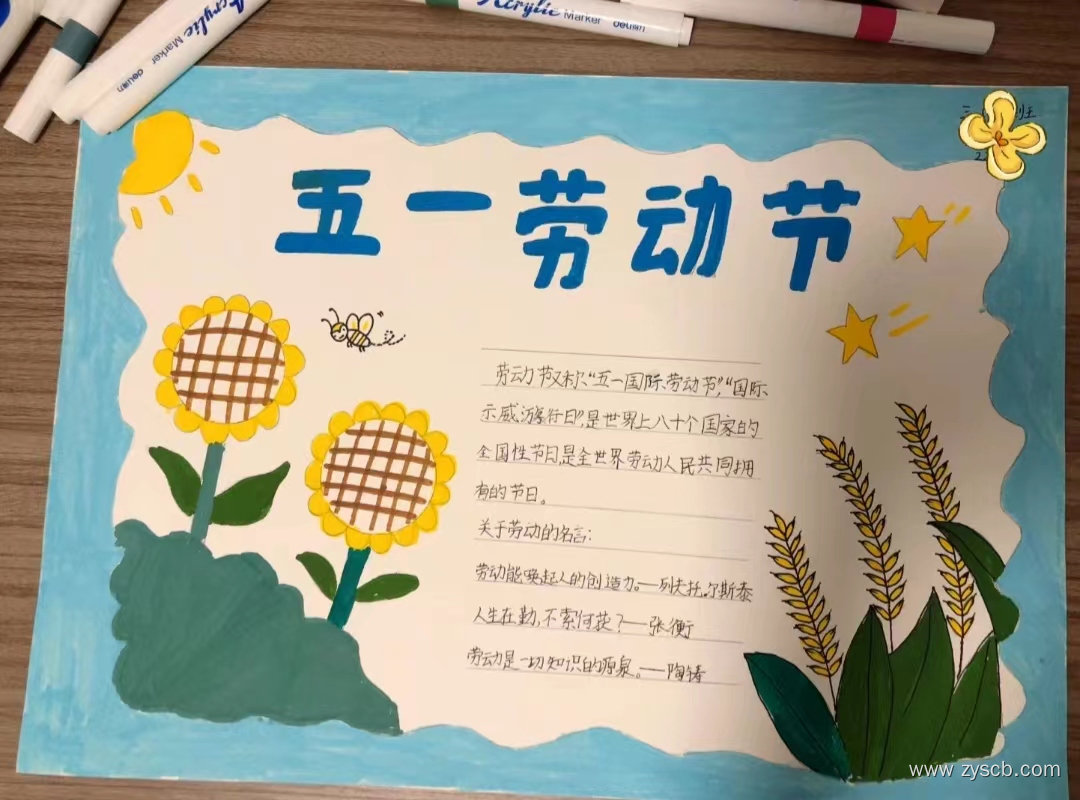 Acrylic Marker deli
Acrylic Marker deli
三 班
五一劳动节
劳动节又称、“五一国际劳动节”,“国际
示威游行日”,是世界上八十个国家的
全国性节日是全世界劳动人民共同拥
有的节日。
关于劳动的名言:
劳动能唤起人的创造力。——列夫托尔斯泰
人生在勤,不索何获?——张衡
劳动是一切知识的源泉。——陶铸
www.zyscb.com